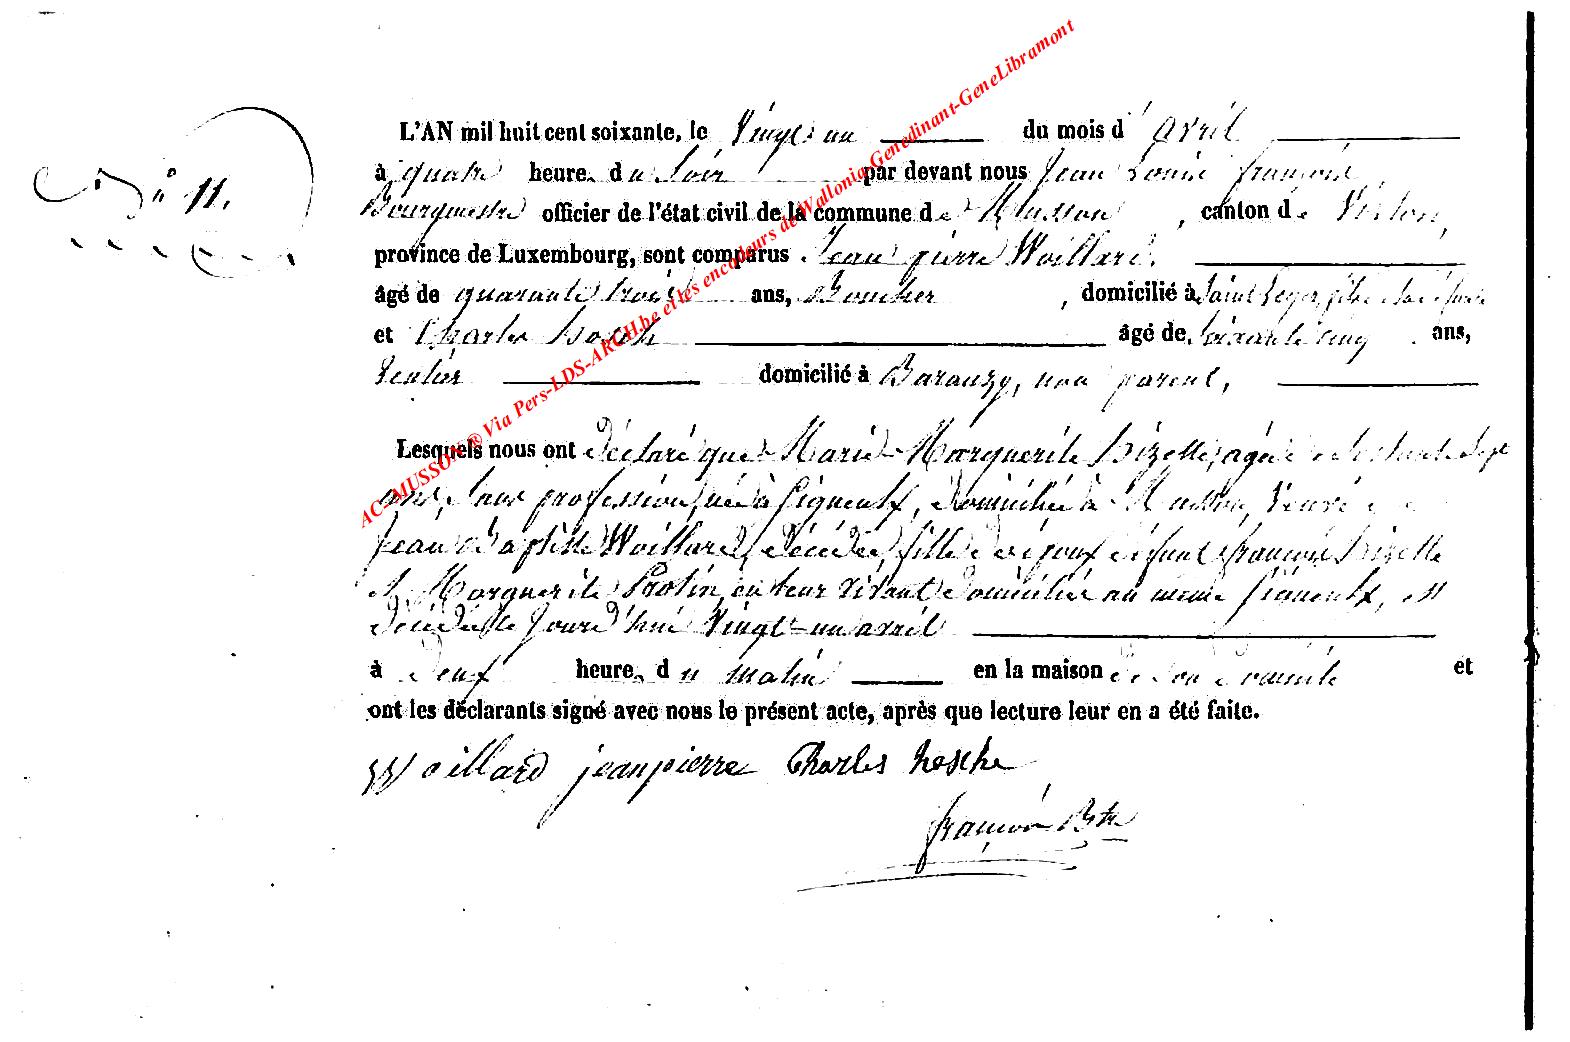 N° 11.
L'AN mil huit cent soixante, le Vingt un du mois d'avril
à quatre heure. du Soir par devant nous Jean Louis françois,
Bourgmestre officier de l'état civil de la commune de Musson, canton de Virton,
province de Luxembourg, sont comparus Jean pierre Woillard,
âgé de quarante trois ans, Boucher, domicilié à Saint Leger, fils
et Charles âgé de Soixante cinq ans,
Rentier domicilié à Baranzy, non parent,
Lesquels nous ont déclaré que Marie Marguerite Bizette, agée de Septante Sept
ans, Sans profession, née à Signeulx, domiciliée à Musson, Veuve de
Jean Baptiste Woillard, décédé, fille des époux défunts françois Bizette
et Marguerite Protin, en leur vivant domiciliés au même Signeulx, est
décédée le Jourd'hui Vingt-un avril
à deux heure. du matin en la maison de Son domicile et
ont les déclarants signé avec nous le présent acte, après que lecture leur en a été faite.
Woillard jeanpierre Charles hosche
françois Btre
AC-MUSSON ® Via Pers-LDS-ARCH.be et les encodeurs de Wallonia-Genedinant-GeneLibramont